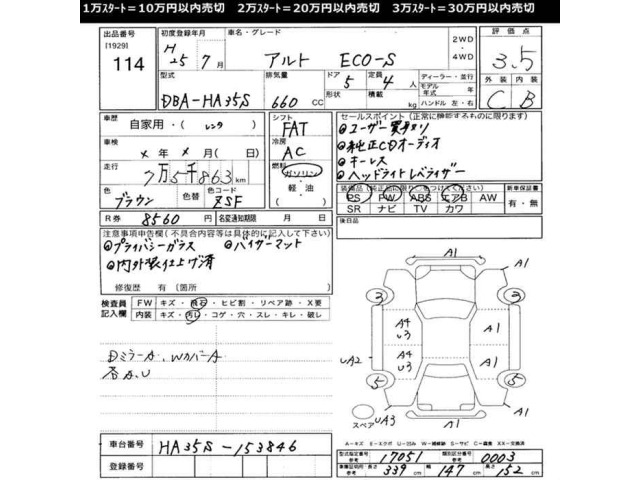 1万スタート=10万円以内売切　2万スタート=20万円以内売切　3万スタート=30万円以内売切
出品番号 初度登録年月 車名・グレード 評価点
[1929] H25年7月 アルト ECO-S 2WD・4WD 3.5
114
型式 排気量 ドア 5 定員 4人 ディーラー・並行 外装 内装
DBA-HA35S 660 CC 形状 積載 kg モデル年式 年 ハンドル 左・右 C B
車歴 自家用・(レンタ) シフト FAT セールスポイント(正常に機能するものに限ります)
車検 ×年×月(日) 冷房 AC ●ユーザー買取り
走行 7万5千863km 燃料 ガソリン・軽油・ ●純正CDオーディオ
●キーレス
●ヘッドライトレベライザー
色 ブラウン 色替 色コード ZSF 装備品(純正品に限り○をつけてください) 新車保証書
PS PW ABS エアB AW 有・無
SR ナビ TV カワ
R券 8560円 名変通知期限 月 日 後日品
注意事項申告欄(不具合内容等は具体的に記入して下さい)
●プライバシーガラス ●バイザーマット
●内外装仕上げ済
修復歴 有(箇所 )
検査員記入欄 FW キズ・飛石・ヒビ割・リペア跡・X要
内装 キズ・汚れ・コゲ・穴・スレ・キレ・破レ
DミラーA、WカバーA
各A、U
A1
3 3
A1
A4 U3 A1
UA2
A4 U3 A1
5 5
スペア UA3 A1
A1
A-キズ E-エクボ U-凹み W-補修跡 S-サビ C-腐食 XX-交換済
車台番号 HA35S-153846
登録番号
型式指定番号 参考 17051 類別区分番号 参考 0003
車検証切可 参考 長さ 339 cm 幅 147 cm 高さ 152 cm